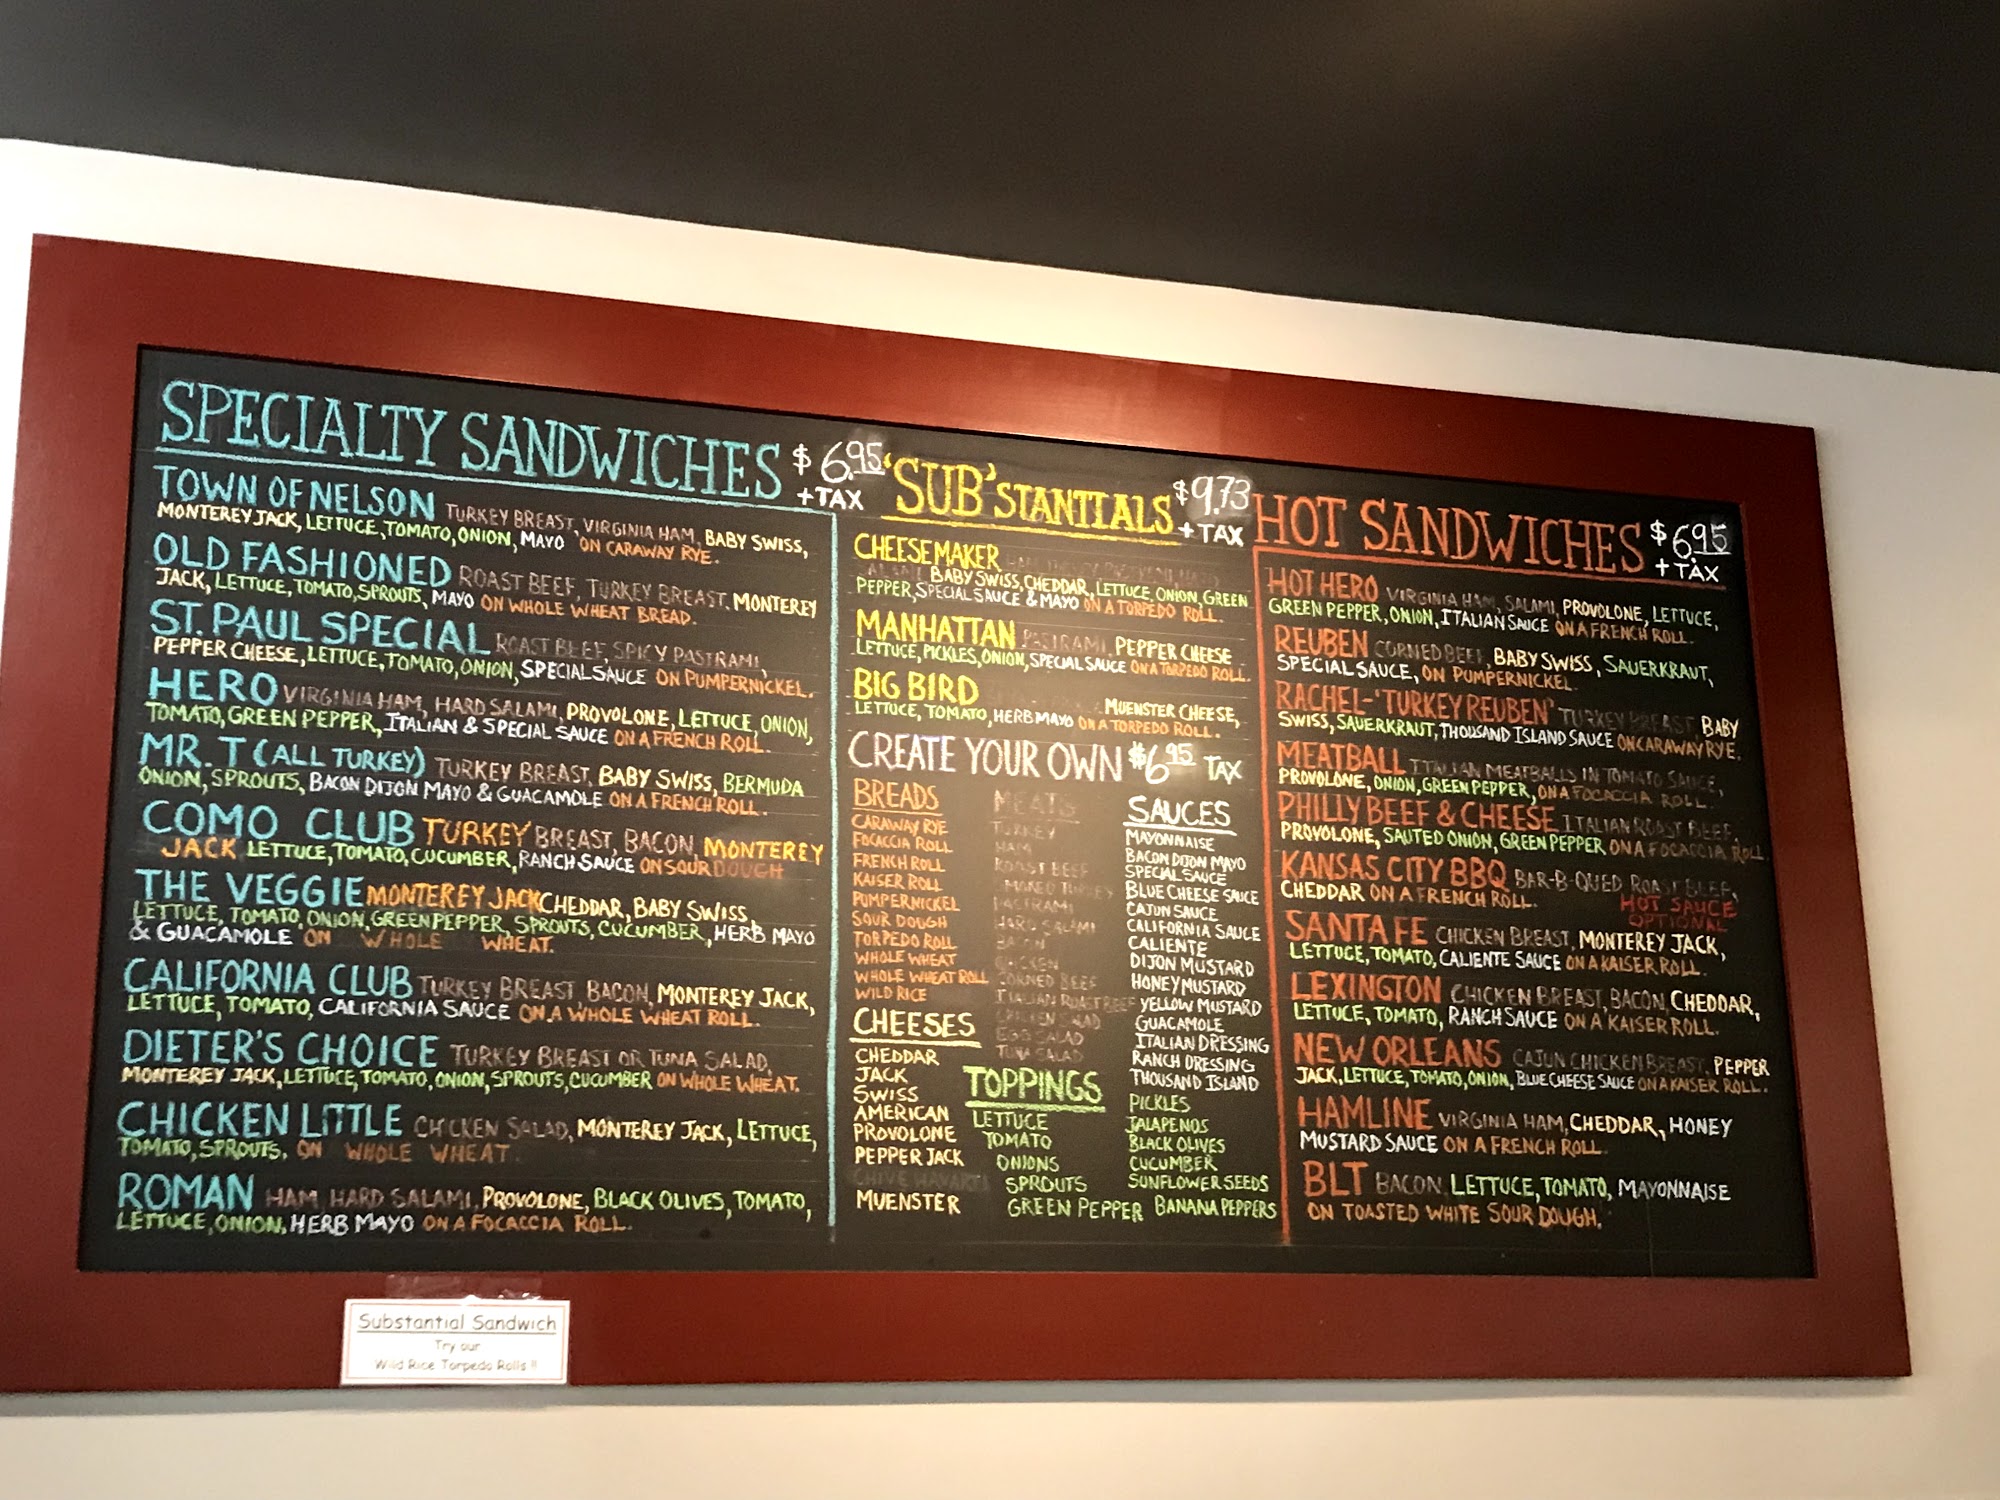 SPECIALTY SANDWICHES $6.95
+TAX
TOWN OF NELSON TURKEY BREAST, VIRGINIA HAM, BABY SWISS,
MONTEREY JACK, LETTUCE, TOMATO, ONION, MAYO ON CARAWAY RYE.
OLD FASHIONED ROAST BEEF, TURKEY BREAST, MONTEREY
JACK, LETTUCE, TOMATO, SPROUTS, MAYO ON WHOLE WHEAT BREAD.
ST. PAUL SPECIAL ROAST BEEF, SPICY PASTRAMI,
PEPPER CHEESE, LETTUCE, TOMATO, ONION, SPECIAL SAUCE ON PUMPERNICKEL.
HERO VIRGINIA HAM, HARD SALAMI, PROVOLONE, LETTUCE, ONION,
TOMATO, GREEN PEPPER, ITALIAN & SPECIAL SAUCE ON A FRENCH ROLL.
MR. T (ALL TURKEY) TURKEY BREAST, BABY SWISS, BERMUDA
ONION, SPROUTS, BACON DIJON MAYO & GUACAMOLE ON A FRENCH ROLL.
COMO CLUB TURKEY BREAST, BACON, MONTEREY
JACK LETTUCE, TOMATO, CUCUMBER, RANCH SAUCE ON SOUR DOUGH
THE VEGGIE MONTEREY JACK CHEDDAR, BABY SWISS,
LETTUCE, TOMATO, ONION, GREEN PEPPER, SPROUTS, CUCUMBER, HERB MAYO
& GUACAMOLE ON WHOLE WHEAT.
CALIFORNIA CLUB TURKEY BREAST, BACON, MONTEREY JACK,
LETTUCE, TOMATO, CALIFORNIA SAUCE ON A WHOLE WHEAT ROLL.
DIETER'S CHOICE TURKEY BREAST OR TUNA SALAD,
MONTEREY JACK, LETTUCE, TOMATO, ONION, SPROUTS, CUCUMBER ON WHOLE WHEAT.
CHICKEN LITTLE CHICKEN SALAD, MONTEREY JACK, LETTUCE,
TOMATO, SPROUTS. ON WHOLE WHEAT.
ROMAN HAM, HARD SALAMI, PROVOLONE, BLACK OLIVES, TOMATO,
LETTUCE, ONION, HERB MAYO ON A FOCACCIA ROLL.
'SUB'STANTIALS $9.73
+TAX
CHEESEMAKER
BABY SWISS, CHEDDAR, LETTUCE, ONION, GREEN
PEPPER, SPECIAL SAUCE & MAYO ON A TORPEDO ROLL.
MANHATTAN PASTRAMI, PEPPER CHEESE
LETTUCE, PICKLES, ONION, SPECIAL SAUCE ON A TORPEDO ROLL.
BIG BIRD MUENSTER CHEESE,
LETTUCE, TOMATO, HERB MAYO ON A TORPEDO ROLL.
CREATE YOUR OWN $6.95 TAX
BREADS
CARAWAY RYE
FOCACCIA ROLL
FRENCH ROLL
KAISER ROLL
PUMPERNICKEL
SOUR DOUGH
TORPEDO ROLL
WHOLE WHEAT
WHOLE WHEAT ROLL
WILD RICE
CHEESES
CHEDDAR
JACK
SWISS
AMERICAN
PROVOLONE
PEPPER JACK
CHIVE HAVARTI
MUENSTER
MEATS
TURKEY
HAM
ROAST BEEF
SMOKED TURKEY
PASTRAMI
HARD SALAMI
BACON
CHICKEN
CORNED BEEF
ITALIAN ROAST BEEF
CHICKEN SALAD
EGG SALAD
TUNA SALAD
TOPPINGS
LETTUCE
TOMATO
ONIONS
SPROUTS
GREEN PEPPER
SAUCES
MAYONNAISE
BACON DIJON MAYO
SPECIAL SAUCE
BLUE CHEESE SAUCE
CAJUN SAUCE
CALIFORNIA SAUCE
CALIENTE
DIJON MUSTARD
HONEY MUSTARD
YELLOW MUSTARD
GUACAMOLE
ITALIAN DRESSING
RANCH DRESSING
THOUSAND ISLAND
PICKLES
JALAPENOS
BLACK OLIVES
CUCUMBER
SUNFLOWER SEEDS
BANANA PEPPERS
HOT SANDWICHES $6.95
+TAX
HOT HERO VIRGINIA HAM, SALAMI, PROVOLONE, LETTUCE,
GREEN PEPPER, ONION, ITALIAN SAUCE ON A FRENCH ROLL.
REUBEN CORNED BEEF, BABY SWISS, SAUERKRAUT,
SPECIAL SAUCE, ON PUMPERNICKEL.
RACHEL-'TURKEY REUBEN' TURKEY BREAST, BABY
SWISS, SAUERKRAUT, THOUSAND ISLAND SAUCE ON CARAWAY RYE.
MEATBALL ITALIAN MEATBALLS IN TOMATO SAUCE,
PROVOLONE, ONION, GREEN PEPPER, ON A FOCACCIA ROLL.
PHILLY BEEF & CHEESE ITALIAN ROAST BEEF,
PROVOLONE, SAUTED ONION, GREEN PEPPER ON A FOCACCIA ROLL.
KANSAS CITY BBQ BAR-B-QUED ROAST BEEF,
CHEDDAR ON A FRENCH ROLL. HOT SAUCE
OPTIONAL
SANTA FE CHICKEN BREAST, MONTEREY JACK,
LETTUCE, TOMATO, CALIENTE SAUCE ON A KAISER ROLL.
LEXINGTON CHICKEN BREAST, BACON, CHEDDAR,
LETTUCE, TOMATO, RANCH SAUCE ON A KAISER ROLL.
NEW ORLEANS CAJUN CHICKEN BREAST, PEPPER
JACK, LETTUCE, TOMATO, ONION, BLUE CHEESE SAUCE ON A KAISER ROLL.
HAMLINE VIRGINIA HAM, CHEDDAR, HONEY
MUSTARD SAUCE ON A FRENCH ROLL.
BLT BACON, LETTUCE, TOMATO, MAYONNAISE
ON TOASTED WHITE SOUR DOUGH.
Substantial Sandwich
Try our
Wild Rice Torpedo Rolls !!